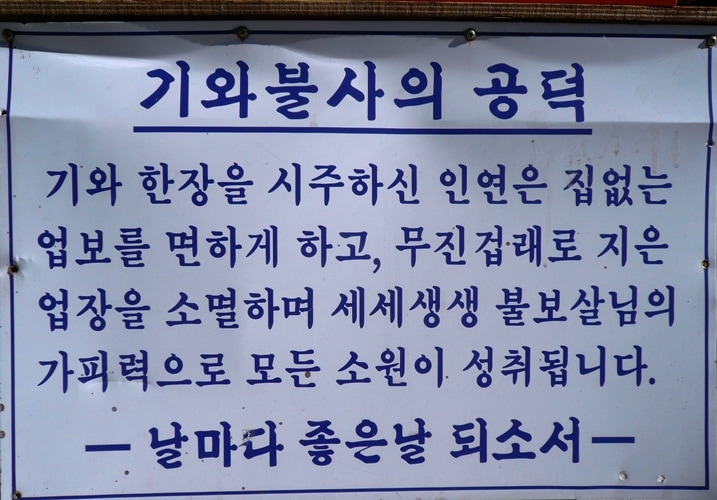 기와불사의 공덕
기와 한장을 시주하신 인연은 집없는
업보를 면하게 하고, 무진겁래로 지은
업장을 소멸하며 세세생생 불보살님의
가피력으로 모든 소원이 성취됩니다.
— 날마다 좋은날 되소서 —